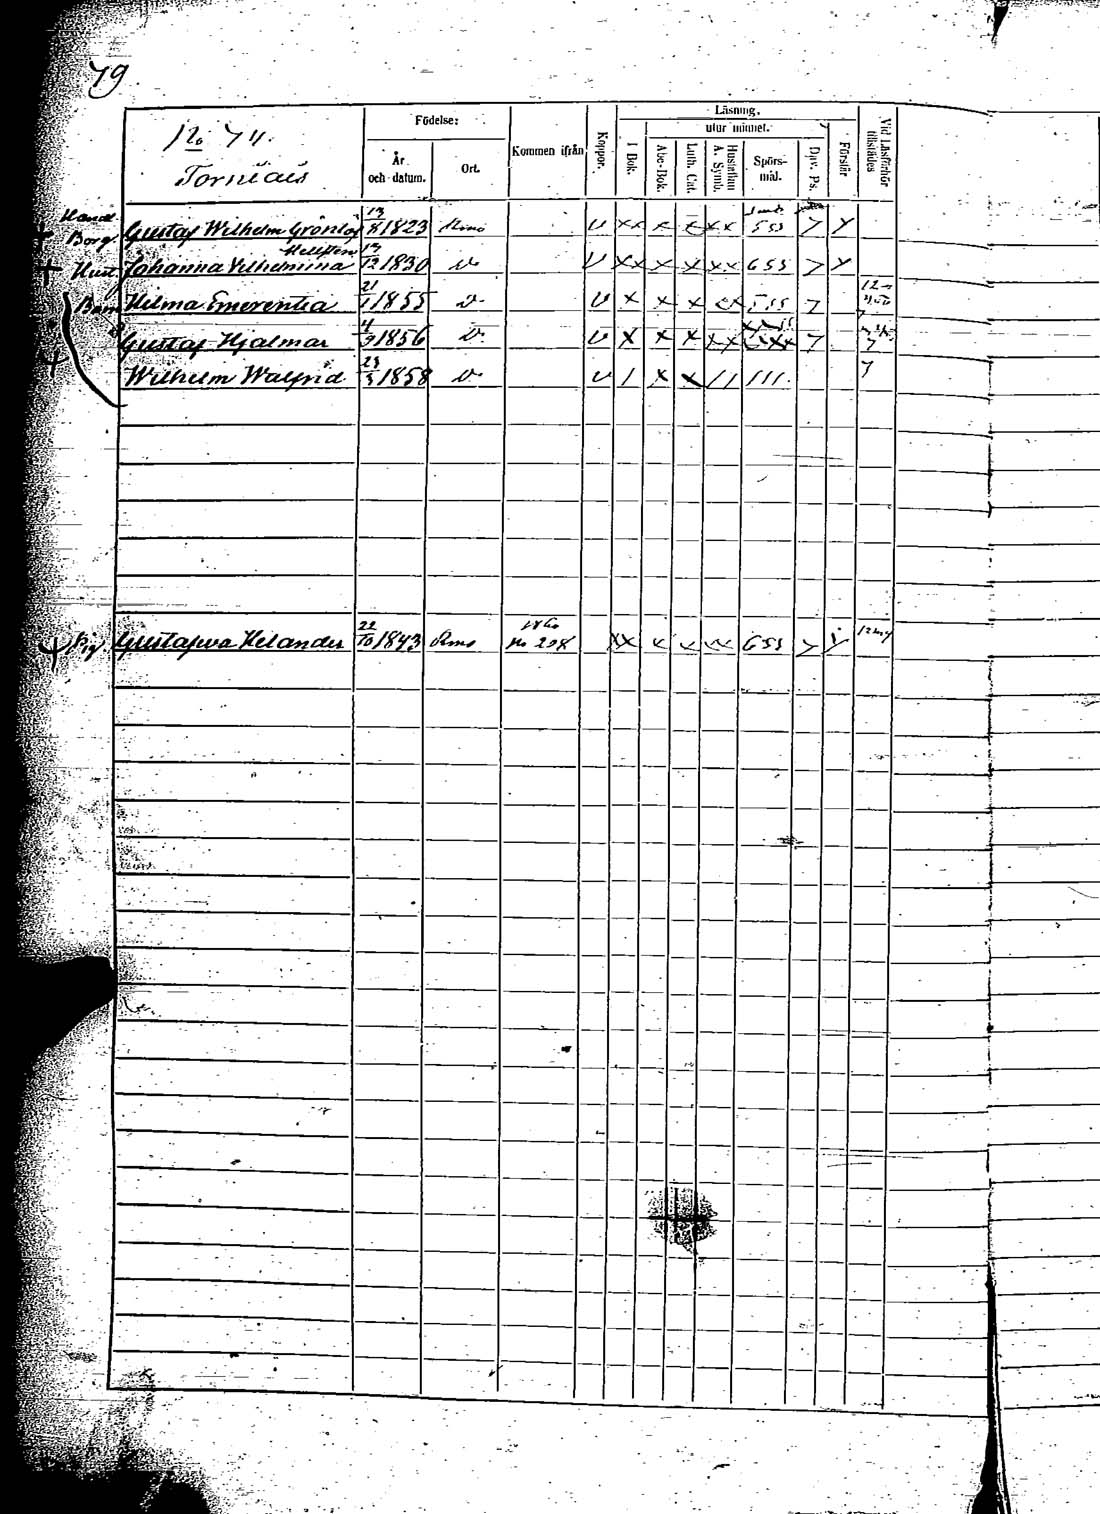 79
No 74.
Torniäis
Födelse:
År och datum.
Ort.
Kommen ifrån
Koppor.
Läsning.
utur minnet.
I Bok.
Abc-Bok.
Luth. Cat.
Hustaflan A. Symb.
Spörsmål.
Dav. Ps.
Förstår
Vid Läsförhör tillstädes
Handl. Borg. Gustaf Wilhelm Grönlöf 13/8 1823 V XX X X XX 555
Hust. Johanna Vilhelmina 13/12 1830 D:o V XX X X XX 655
Barn Hilma Emerentia 21/1 1855 D:o V X X X XX 555 7
Gustaf Hjalmar 4/9 1856 D:o V X X X XX 7
Wilhelm Walfrid 23/3 1858 D:o V / X X // /// 7
Pig. Gustafwa Helander 22/10 1843 1860 No 208 XX 655